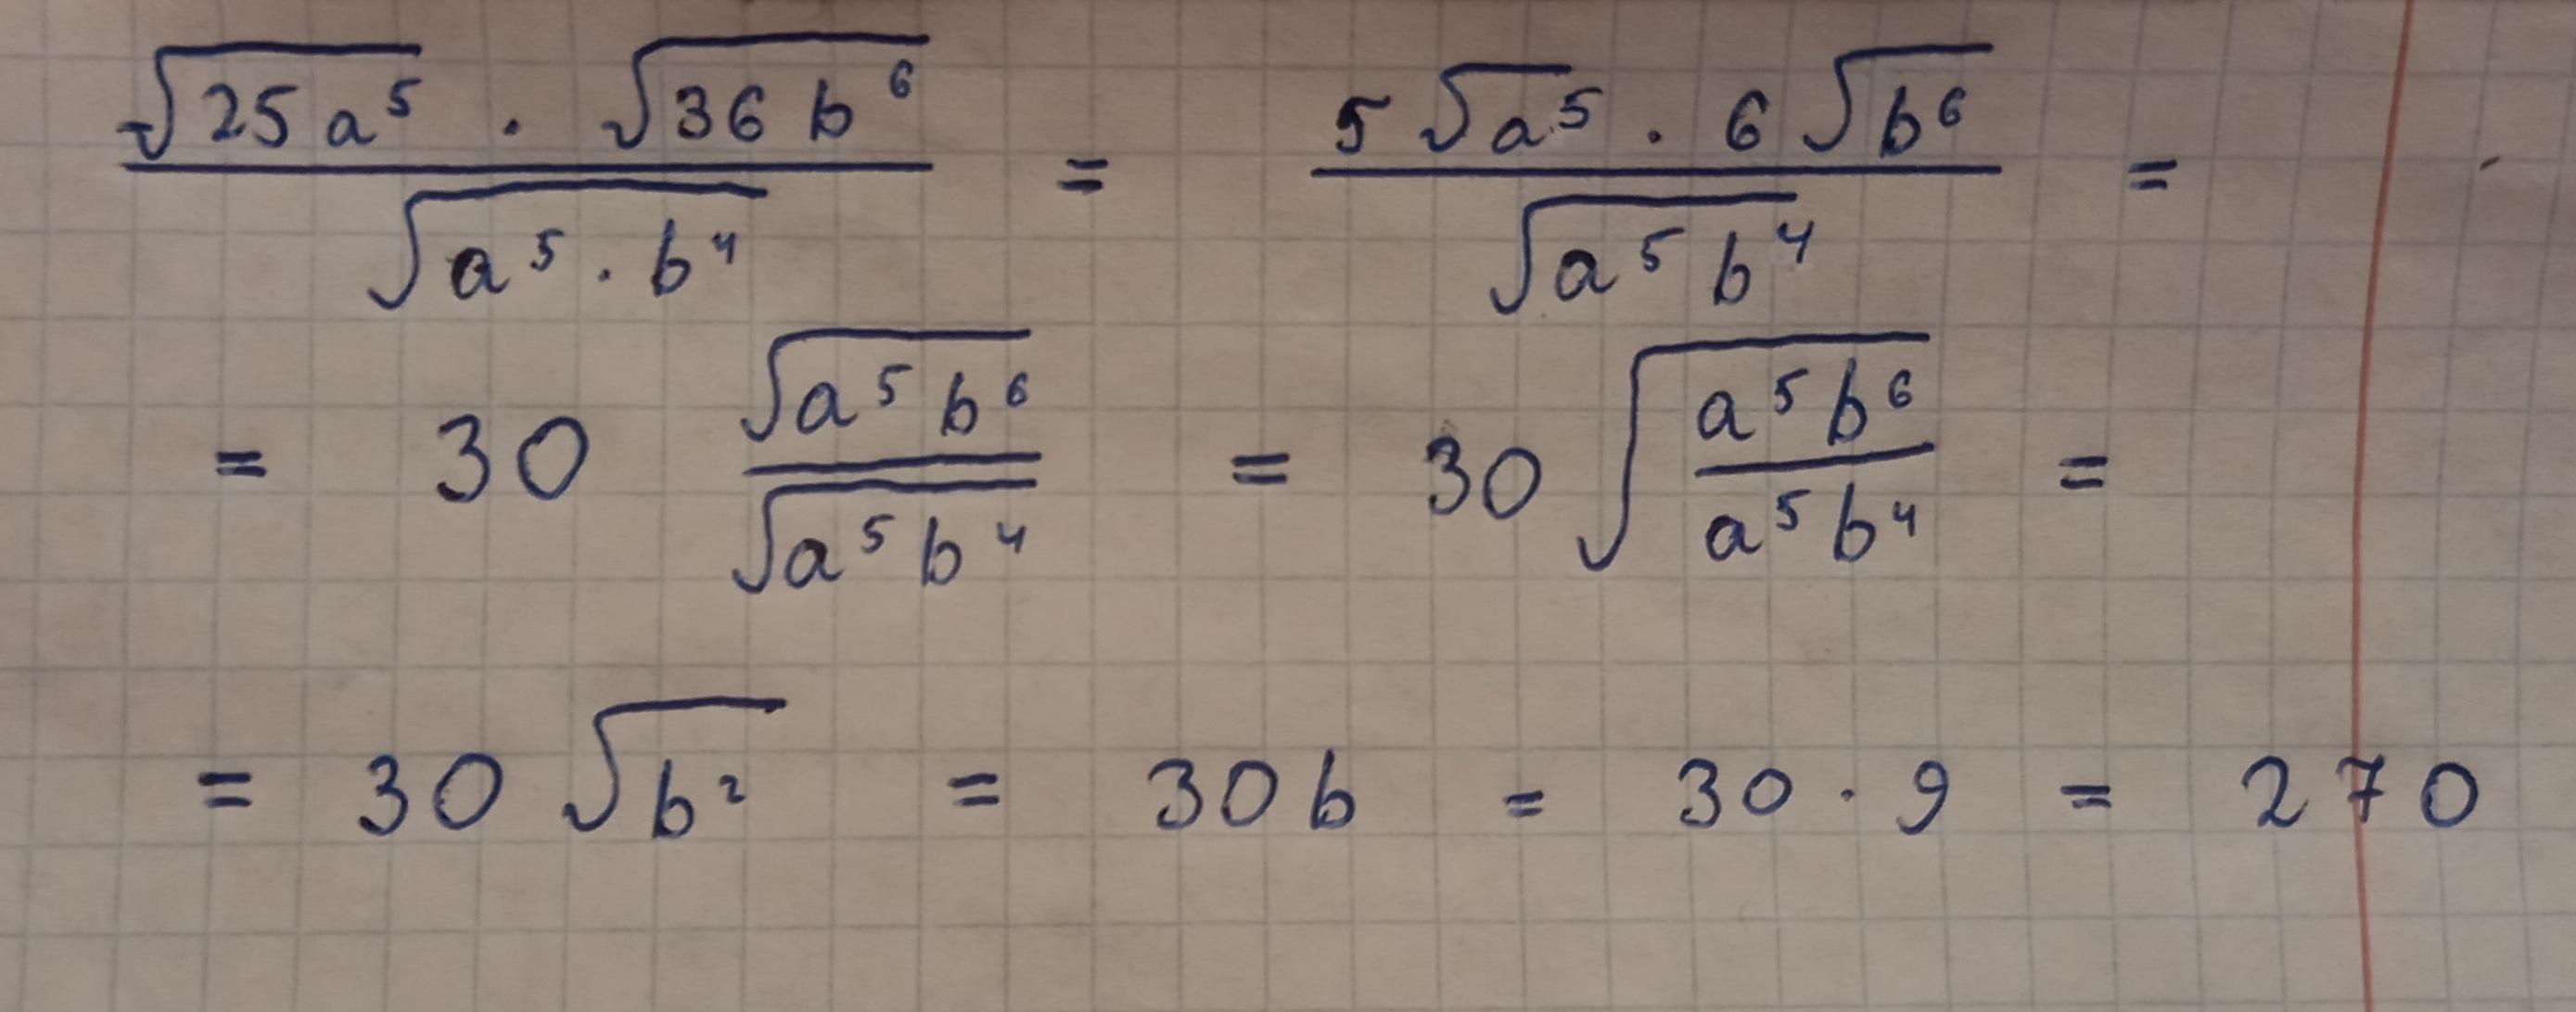 $\frac{\sqrt{25a^5} \cdot \sqrt{36b^6}}{\sqrt{a^5 \cdot b^4}} = \frac{5\sqrt{a^5} \cdot 6\sqrt{b^6}}{\sqrt{a^5 b^4}} =$
$= 30 \frac{\sqrt{a^5 b^6}}{\sqrt{a^5 b^4}} = 30 \sqrt{\frac{a^5 b^6}{a^5 b^4}} =$
$= 30\sqrt{b^2} = 30b = 30 \cdot 9 = 270$